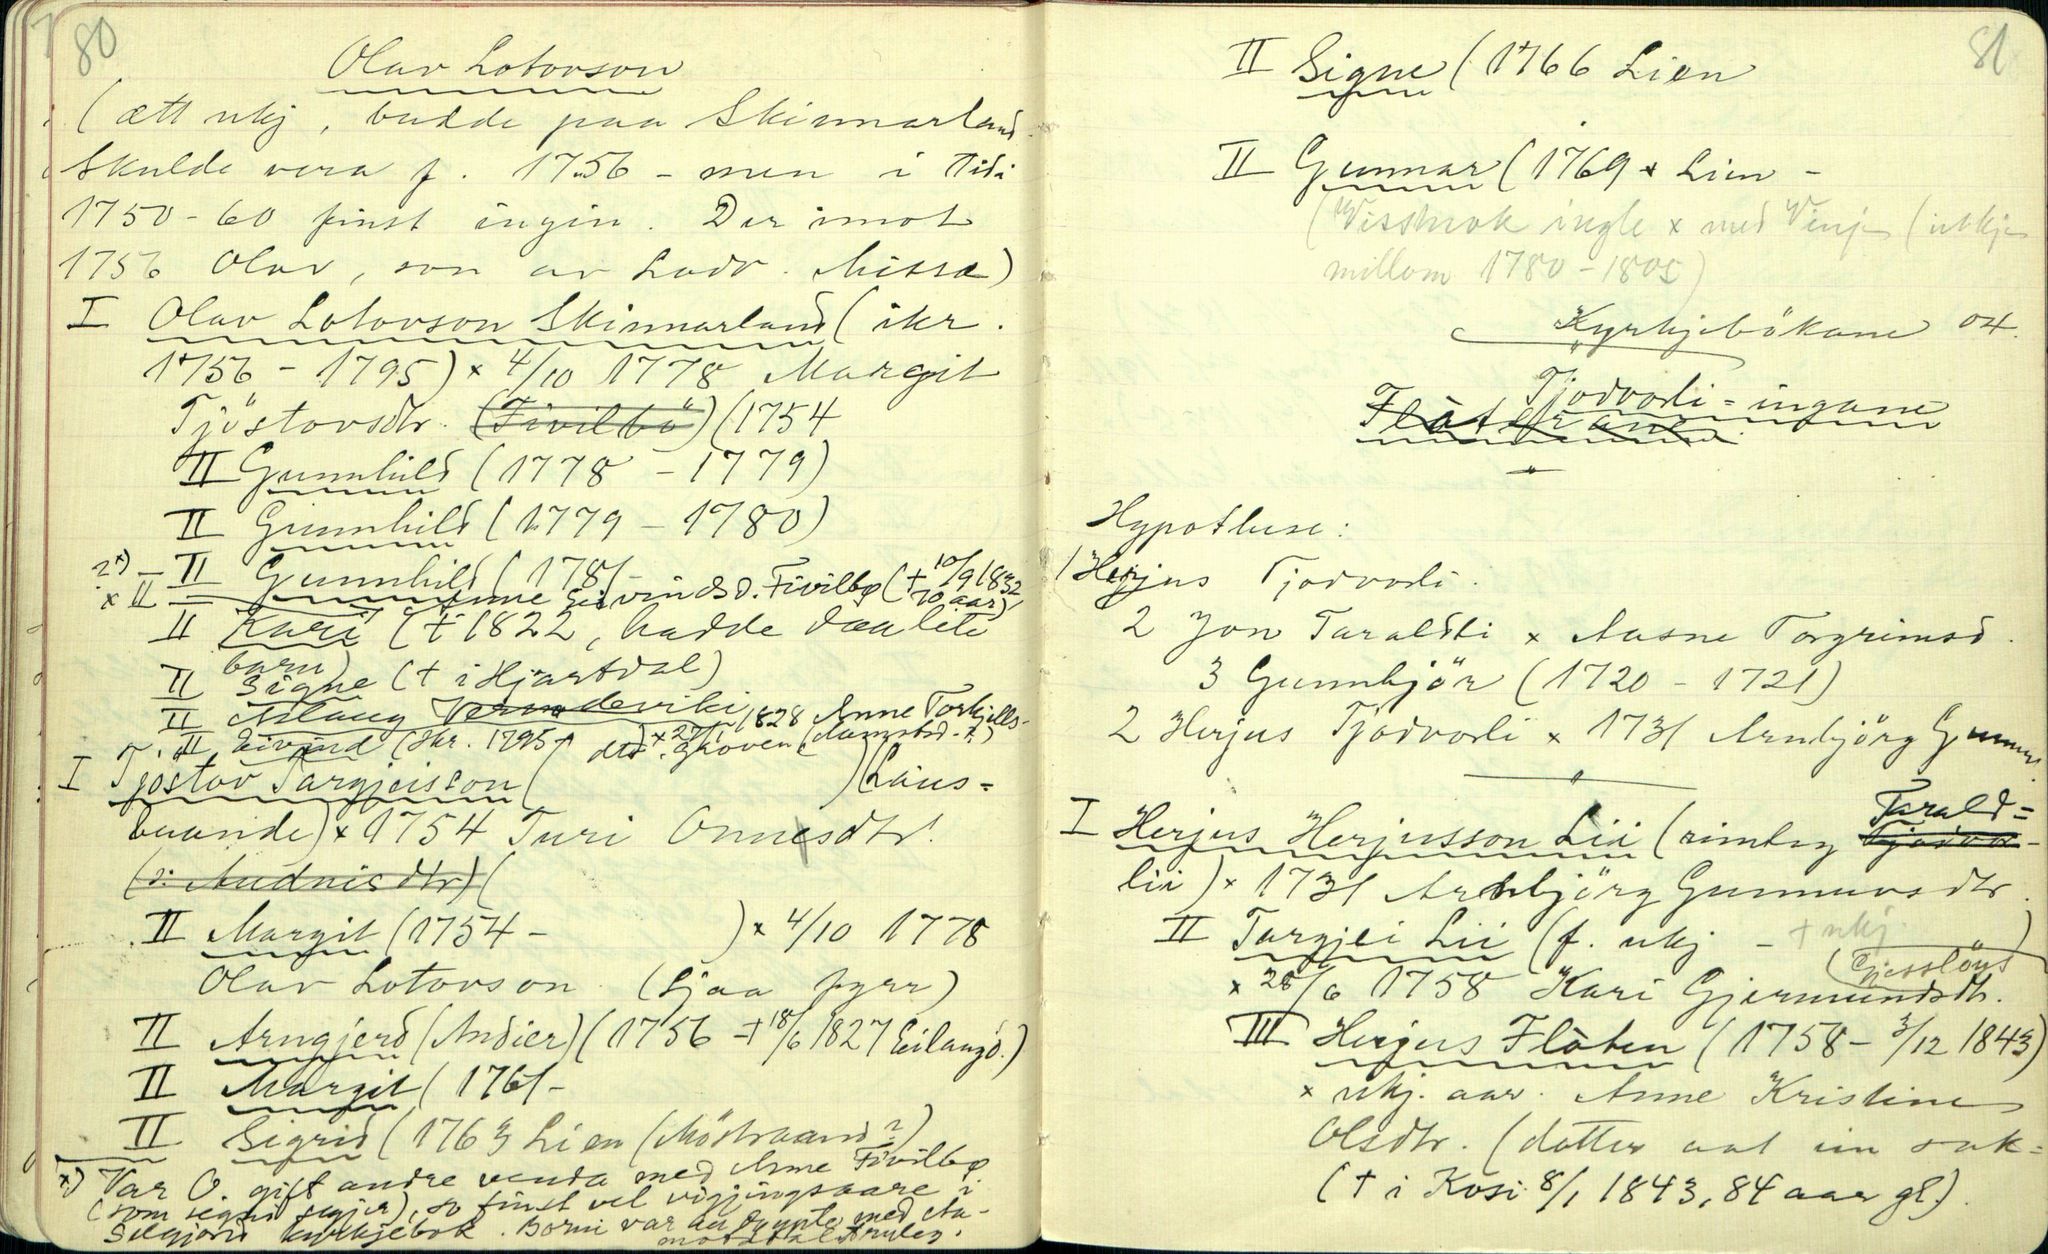 80
Olav Lotovson
(ætt ukj, budde paa Skinnarland.
Skulde vera f. 1756 - men i Tidi
1750-60 finst ingin. Der imot
1756 Olav, son av Ladv. Missa)
I Olav Lotovson Skinnarland (ikr.
1756 - 1795) × 4/10 1778 Margit
Tjöstovsdtr. (Fivilbö) (1754
II Gunnhild (1778 - 1779)
II Gunnhild (1779 - 1780)
II Gunnhild (1781 -
2×) × II Anne Eivindsd. Fivilbø († 10/9 1832, 70 aar)
II Kari († 1822, hadde daa lite
barn)
II Signe († i Hjartdal)
II Aslaug
II Eivind (ikr. 1795 - ) × 27/1 1828 Anne Torkjells-
dtr. Skoven
I Tjöstov Targjeisson ( ) (Laus-
buande) × 1754 Turi Onnesdtr!
(: Audnisdtr) (
II Margit (1754 - ) × 4/10 1778
Olav Lotovson (Sjaa fyrr)
II Arngjerd (Andier) (1756 - † 18/6 1827 Eilaugd.)
II Margit (1761 -
II Sigrid (1763 Lien (Möstraand?)
×) Var O. gift andre venda med Anne Fivilbø
(som segni segjer), so finst vel vigjingsaare i
Seljord kyrkjebok. Borni var au döypte med
81
II Signe (1766 Lien
II Gunnar (1769 × Lien -
(Visstnok ingle × med Vinje (utkje
millom 1780 - 1805)
Kyrkjebökane 04.
Tjodvorli-ingane
Flåterane
Hypothese:
1 Herjus Tjodvorli.
2 Jon Taraldli × Aasne Torgrimsd.
3 Gunnbjör (1720 - 1721)
2 Herjus Tjodvorli × 1731 Arnbjörg Gunnars
I Herjus Herjusson Lii (rimleg Tjodvo- Tarald=
lii) × 1731 Arnbjörg Gunnarsdtr.
II Targjei Lii (f. ukj - † ukj )
× 28/6 1758 Kari Gjermundsdtr. (Gjesslöys
III Herjus Flåten (1758 - 3/12 1843)
× ukj. aar. Anne Kristine
Olsdtr. (dotter aat ein sak=
(† i Kosi 8/1 1843, 84 aar gl.)